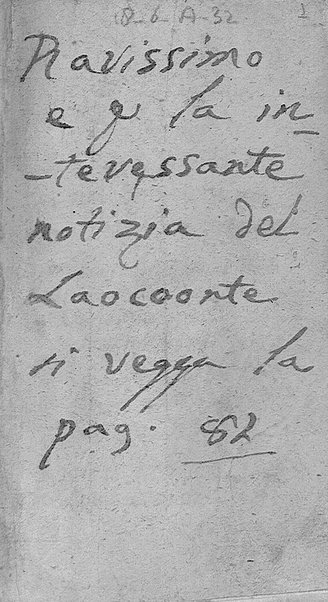 8-6 A-32 1
Rarissimo
e p la in-
-teressante
notizia del
Laocoonte
si vegga la
pag. 82